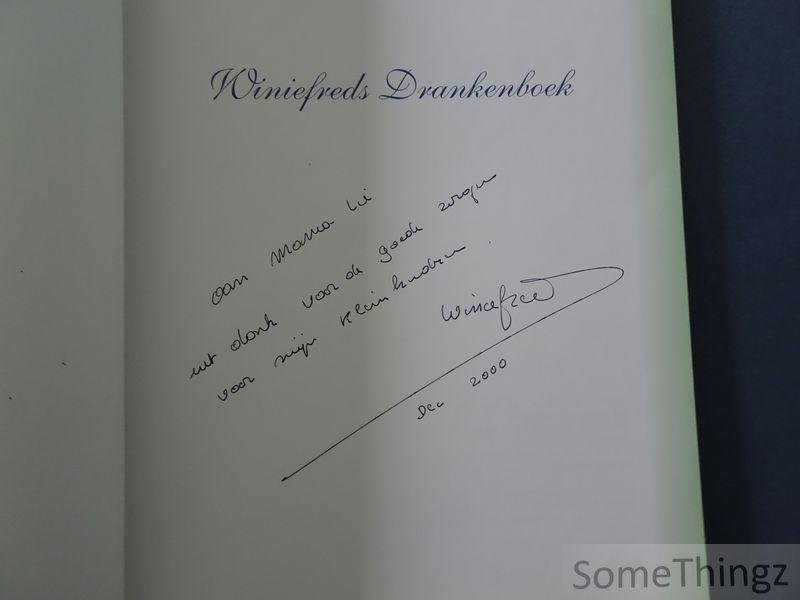 Winiefreds Drankenboek
aan Mama Lie
uit dank voor de goede zorgen
voor mijn kleinkinderen.
Winiefred
Dec 2000
SomeThingz